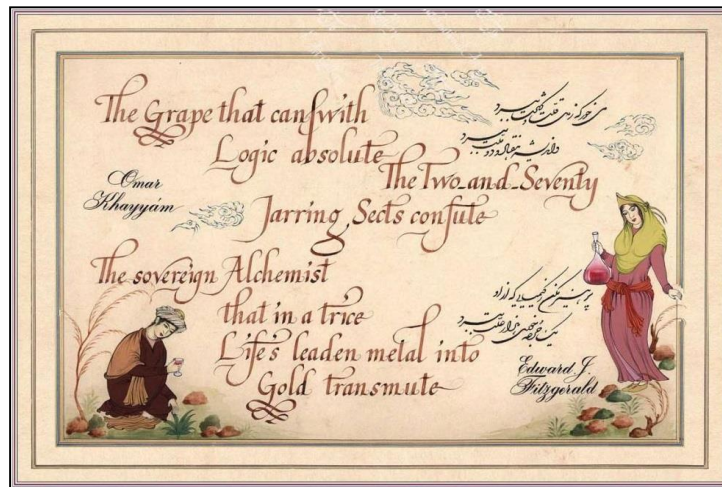 The Grape that can with
Logic absolute
The Two-and-Seventy
Jarring Sects confute
Omar
Khayyám
The sovereign Alchemist
that in a trice
Life's leaden metal into
Gold transmute
می خور که قلت و کثرت ببرد
و اندیشه هفتاد و دو ملت ببرد
پرهیز مکن ز کیمیایی که از او
یک جرعه خوری هزار علت ببرد
Edward J.
Fitzgerald